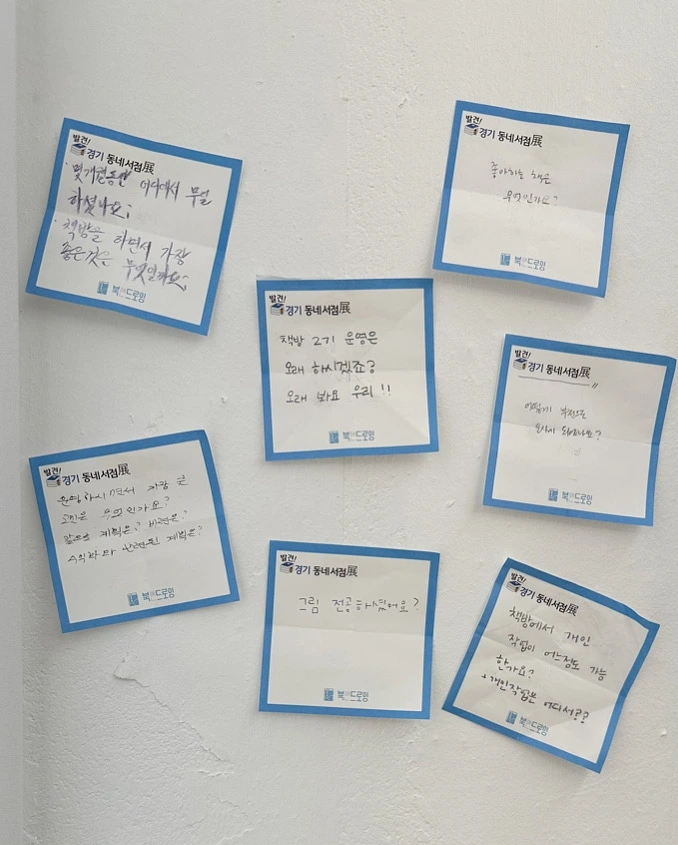 발견!
경기 동네서점展
· 몇개월동안 어디에서 무얼
하셨나요?
· 책방을 하면서 가장
좋은것은 무엇일까요?
북드로잉
발견!
경기 동네서점展
좋아하는 책은
무엇인가요?
북드로잉
발견!
경기 동네서점展
책방 2기 운영은
오래 하시겠죠?
오래 봐요 우리!!
북드로잉
발견!
경기 동네서점展
어떻게
오시게 되었나요?
북드로잉
발견!
경기 동네서점展
운영하시면서 가장 큰
고민은 무엇인가요?
앞으로 계획은? 비전은?
계획은?
북드로잉
발견!
경기 동네서점展
그림 전공하셨어요?
북드로잉
발견!
경기 동네서점展
책방에서 개인
작업이 어느정도 가능
한가요?
+ 개인작업은 어디서??
북드로잉